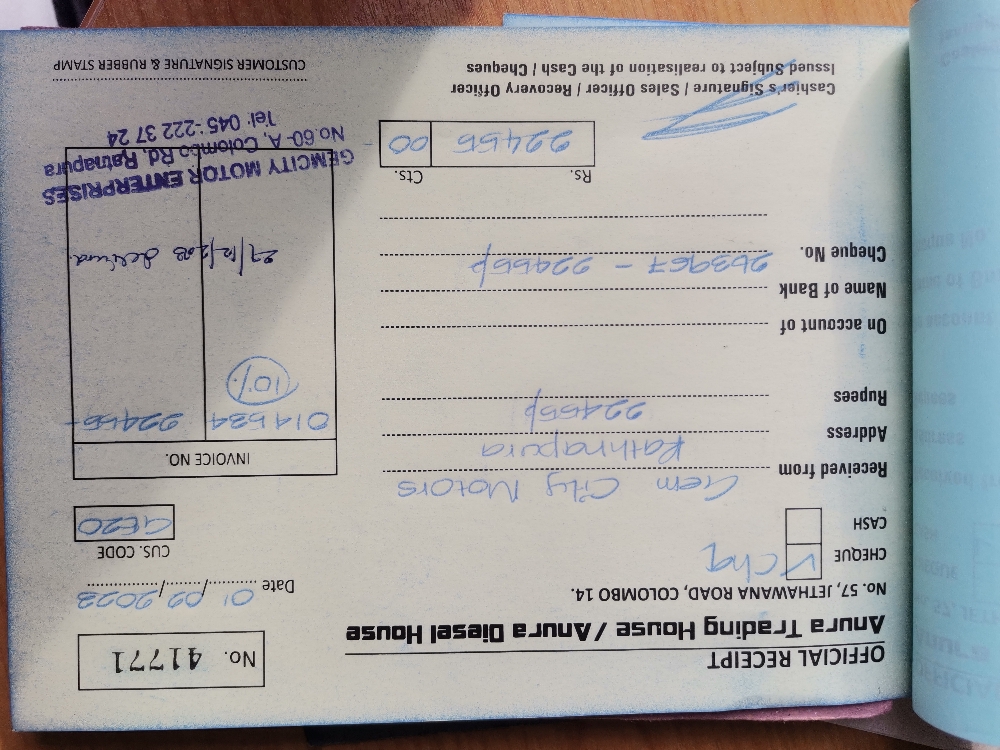 OFFICIAL RECEIPT
Anura Trading House / Anura Diesel House
No. 57, JETHAWANA ROAD, COLOMBO 14.
No. 41771
Date 01/02/2023
CHEQUE ✓ Chq
CASH
CUS. CODE
GE20
Received from Gem City Motors
Address Rathnapura
Rupees 22455/-
On account of
Name of Bank
Cheque No. 263967 - 22455/-
INVOICE NO.
014534 22455-
10%
Rs. Cts.
22455 00
GEMCITY MOTOR ENTERPRISES
No.60-A, Colombo Rd, Ratnapura
Tel: 045-222 37 24
Cashier's Signature / Sales Officer / Recovery Officer
Issued Subject to realisation of the Cash / Cheques
CUSTOMER SIGNATURE & RUBBER STAMP